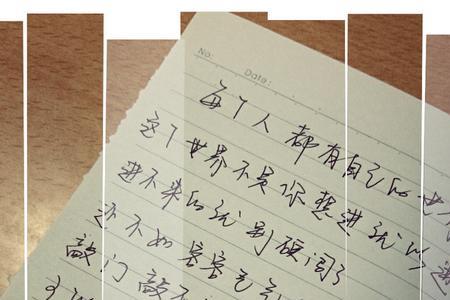 No:
Date:
每个人都有自己的世
这个世界不是你想进就以
进不来的就别硬闯了
还不如
敲门敲不